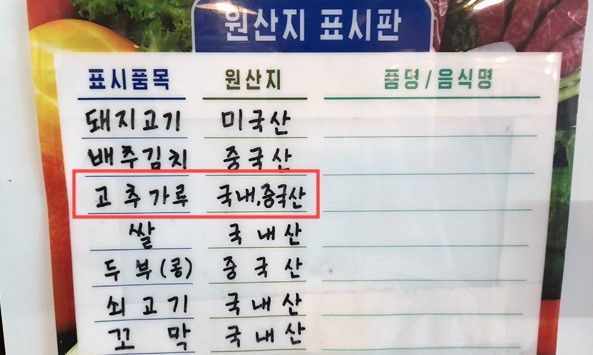 원산지 표시판
표시품목 원산지 품명/음식명
돼지고기 미국산
배추김치 중국산
고추가루 국내.중국산
쌀 국내산
두부(콩) 중국산
쇠고기 국내산
꼬막 국내산